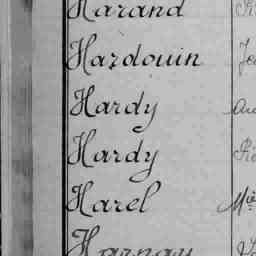 Harand
Hardouin
Hardy
Hardy
Harel
Harnay